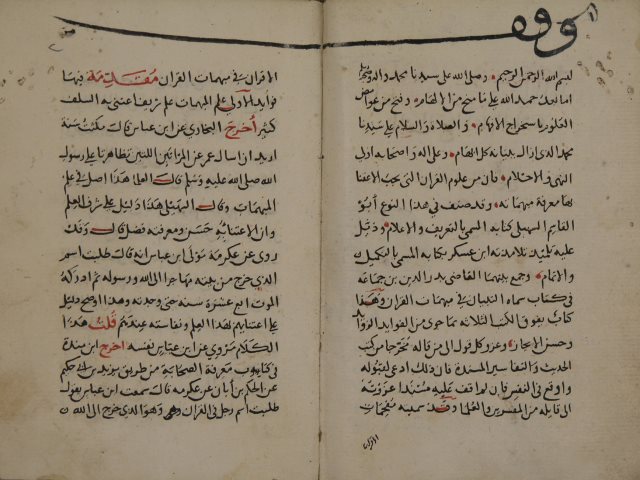 وقف
بسم الله الرحمن الرحيم وصلى الله على سيدنا محمد واله وصحبه
اما بعد حمد الله على ما منح من الالهام وفتح من غوامض
العلوم باستخراج الافهام والصلاة والسلام على سيدنا
محمد الذي ازال ببيانه كل ابهام وعلى اله واصحابه اولى
النهى والاحلام فان من علوم القران التي يجب الاعتنا
بها معرفة مبهماته وقد صنف في هذا النوع أبو
القاسم السهيلي كتابه المسمى بالتعريف والاعلام وذيل
عليه تلميذ تلامذته ابن عسكر بكتابه المسمى بالتكميل
والاتمام وجمع بينهما القاضي بدر الدين بن جماعة
في كتاب سماه التبيان في مبهمات القران وهذا
كتاب يفوق الكتب الثلاثة بما حوى من الفوايد الزوايد
وحسن الايجاز وعزو كل قول الى من قاله مخرجا من كتب
الحديث والتفاسير المسندة فان ذلك ادعى لقبوله
واوقع في النفس فان لم اقف عليه مسندا عزوته
الى قايله من المفسرين والعلما وقد سميته مفحمات
الاقران
الاقران في مبهمات القران مقدمة فيها
فوايد الاولى علم المبهمات علم شريف اعتنى به السلف
كثير أخرج البخاري عن ابن عباس قال مكثت سنة
اريد ان اسال عمر عن المراتين اللتين تظاهرتا على رسول
الله صلى الله عليه وسلم قال العلما هذا اصل في علم
المبهمات وقال السهيلي هذا دليل على شرف العلم
وان الاعتنا به حسن ومعرفته فضل قال وقد
روى عن عكرمة مولى ابن عباس انه قال طلبت اسم
الذي خرج من بيته مهاجرا الى الله ورسوله ثم ادركه
الموت اربع عشرة سنة حتى وجدته وهذا اوضح دليل
على اعتنايهم بهذا العلم ونفاسته عندهم قلت هذا
الكلام مروي عن ابن عباس نفسه اخرج ابن منده
في كتاب معرفة الصحابة من طريق يزيد بن حكيم
عن الحكم بن ابان عن عكرمه قال سمعت ابن عباس يقول
طلبت اسم رجل في القران وهو الذي خرج الى الله